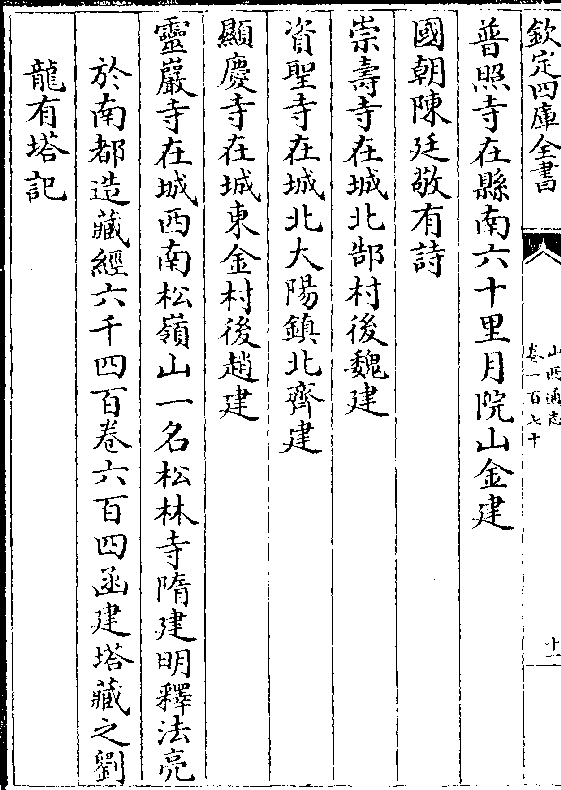 欽定四庫全書
山西通志
卷一百七十
十一
普照寺在縣南六十里月院山金建
國朝陳廷敬有詩
崇壽寺在城北郜村後魏建
資聖寺在城北大陽鎮北齊建
顯慶寺在城東金村後趙建
靈巖寺在城西南松嶺山一名松林寺隋建明釋法亮
於南都造藏經六千四百卷六百四函建塔藏之劉
龍有塔記